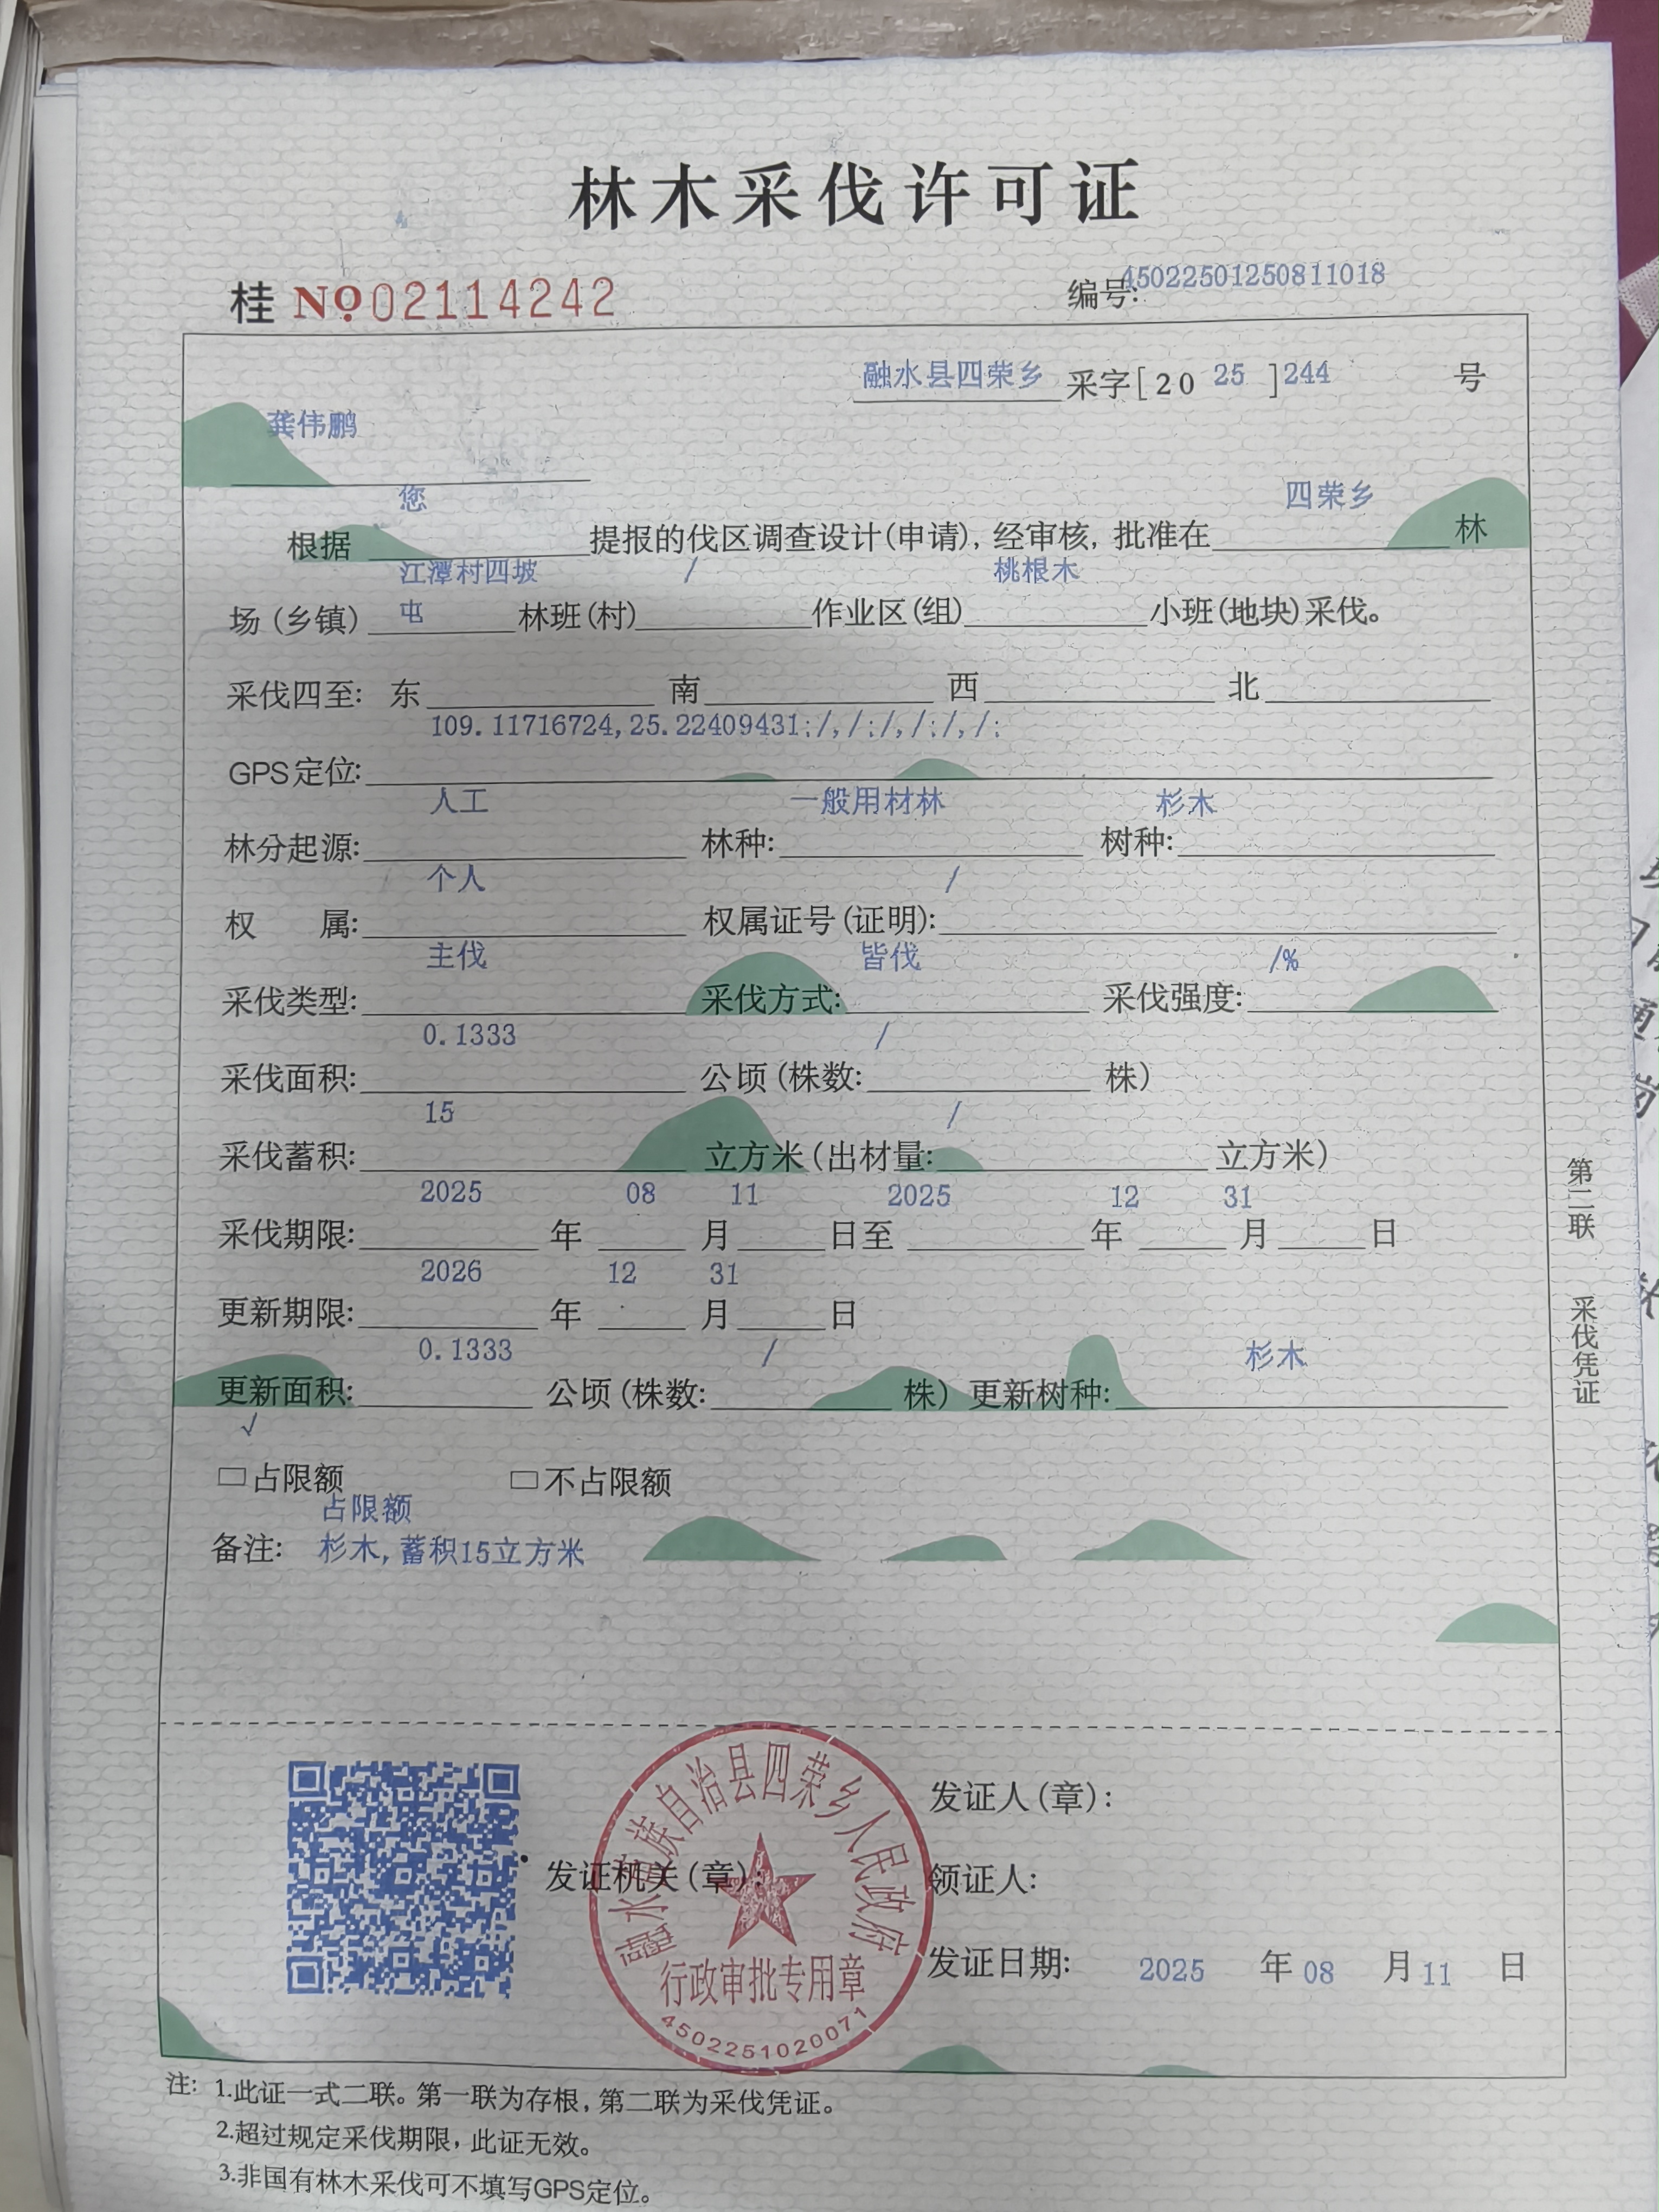 林木采伐许可证
桂 №02114242 编号:45022501250811018
融水县四荣乡 采字[2025]244 号
龚伟鹏
根据 您 提报的伐区调查设计(申请),经审核,批准在 四荣乡 林
场(乡镇) 江潭村四坡屯 林班(村) / 作业区(组) 桃根木 小班(地块)采伐。
采伐四至: 东 南 西 北
GPS定位: 109.11716724,25.22409431;/,/;/,/;/,/;
林分起源: 人工 林种: 一般用材林 树种: 杉木
权属: 个人 权属证号(证明): /
采伐类型: 主伐 采伐方式: 皆伐 采伐强度: /%
采伐面积: 0.1333 公顷(株数: / 株)
采伐蓄积: 15 立方米(出材量: / 立方米)
采伐期限: 2025 年 08 月 11 日至 2025 年 12 月 31 日
更新期限: 2026 年 12 月 31 日
更新面积: 0.1333 公顷(株数: / 株) 更新树种: 杉木
√
□占限额 □不占限额
占限额
备注: 杉木,蓄积15立方米
第二联 采伐凭证
发证人(章):
发证机关(章):
融水苗族自治县四荣乡人民政府
行政审批专用章
4502251020071
领证人:
发证日期: 2025 年 08 月 11 日
注: 1.此证一式二联。第一联为存根,第二联为采伐凭证。
2.超过规定采伐期限,此证无效。
3.非国有林木采伐可不填写GPS定位。